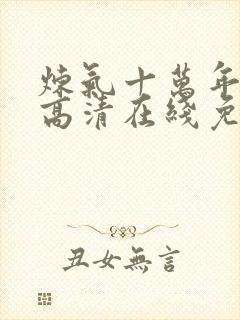 煉氣十萬年
高清在綫免
丑女無言